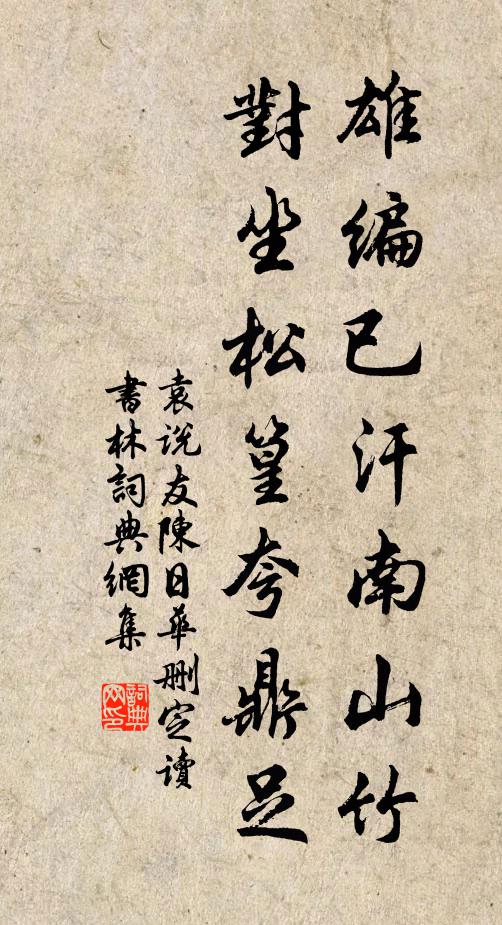 雄编已汗南山竹
對坐松篁夸鼎足
袁说友陳日華删定读
書林詞典網集
詞典网印